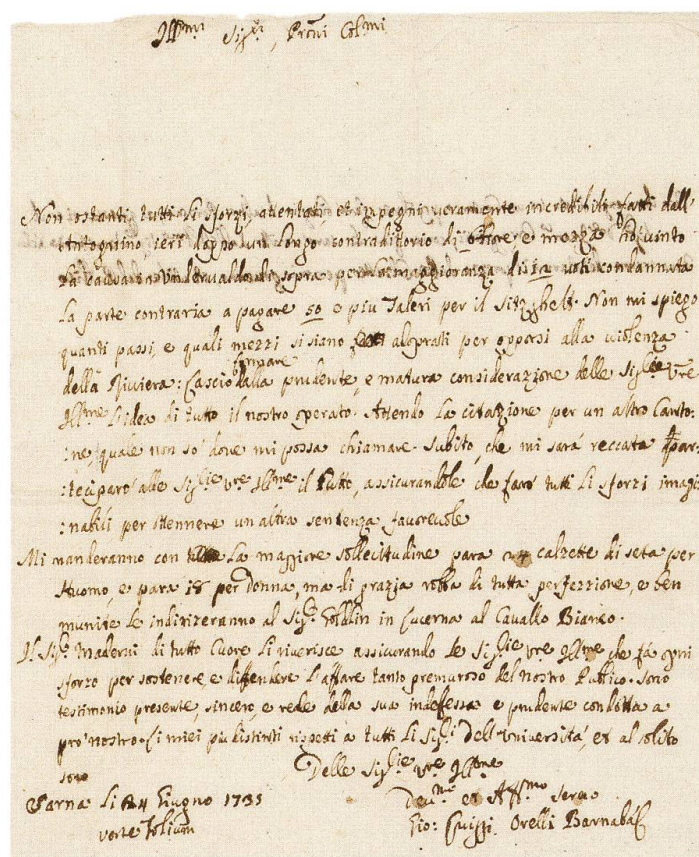 Ill.mi Sig.ri, Proni Col.mi
Non ostanti tutti li sforzi, attentati, et impegni veramente incredibili fatti dall'
Antognino, ieri doppo un longo contraditorio di ott'hore e mezza hò vinto
la causa in Undervaldo di sopra per la maggioranza di voti condannata
la parte contraria a pagare 50 e piu Taleri per il Sitzghelt. Non mi spiego
quanti passi, e quali mezzi si siano adoprati per opporsi alla violenza
della Riviera: lascio formare dalla prudente, e matura considerazione delle Sig.lie vre
Ill.me l'idea di tutto il nostro operato. Attendo la citazione per un altro Canto:
:ne, quale non so' dove mi possa chiamare. Subito, che mi sarà reccata par:
:teciparò alle Sig.lie vre Ill.me il tutto, assicurandole che farò tutti li sforzi imagi:
:nabili per ottennere un altra sentenza favorevole
Mi manderanno con la maggiore sollecitudine para 24 calzette di seta per
Huomo, e para 18 per donna, ma di grazia robba di tutta perfezzione, e ben
munite le indirizeranno al Sig.r Goldlin in Lucerna al Cavallo Bianco.
Il Sig.r Maderni di tutto Cuore li riverisce assicurando le Sig.lie vre Ill.me che fà ogni
sforzo per sostenere, e diffendere l'affare tanto premuroso del nostro Publico. Sono
testimonio presente, sincero, e de della sua indefessa e prudente condotta a
pro' nostro. Li miei più distinti rispetti à tutti li Sig.ri dell'Università, et al solito
sono
Delle Sig.lie vre Ill.me
Sarna li 24 Giugno 1735
Dev.mo et Aff.mo servo
verte folium
Gio: Luiggi Orelli Barnabá